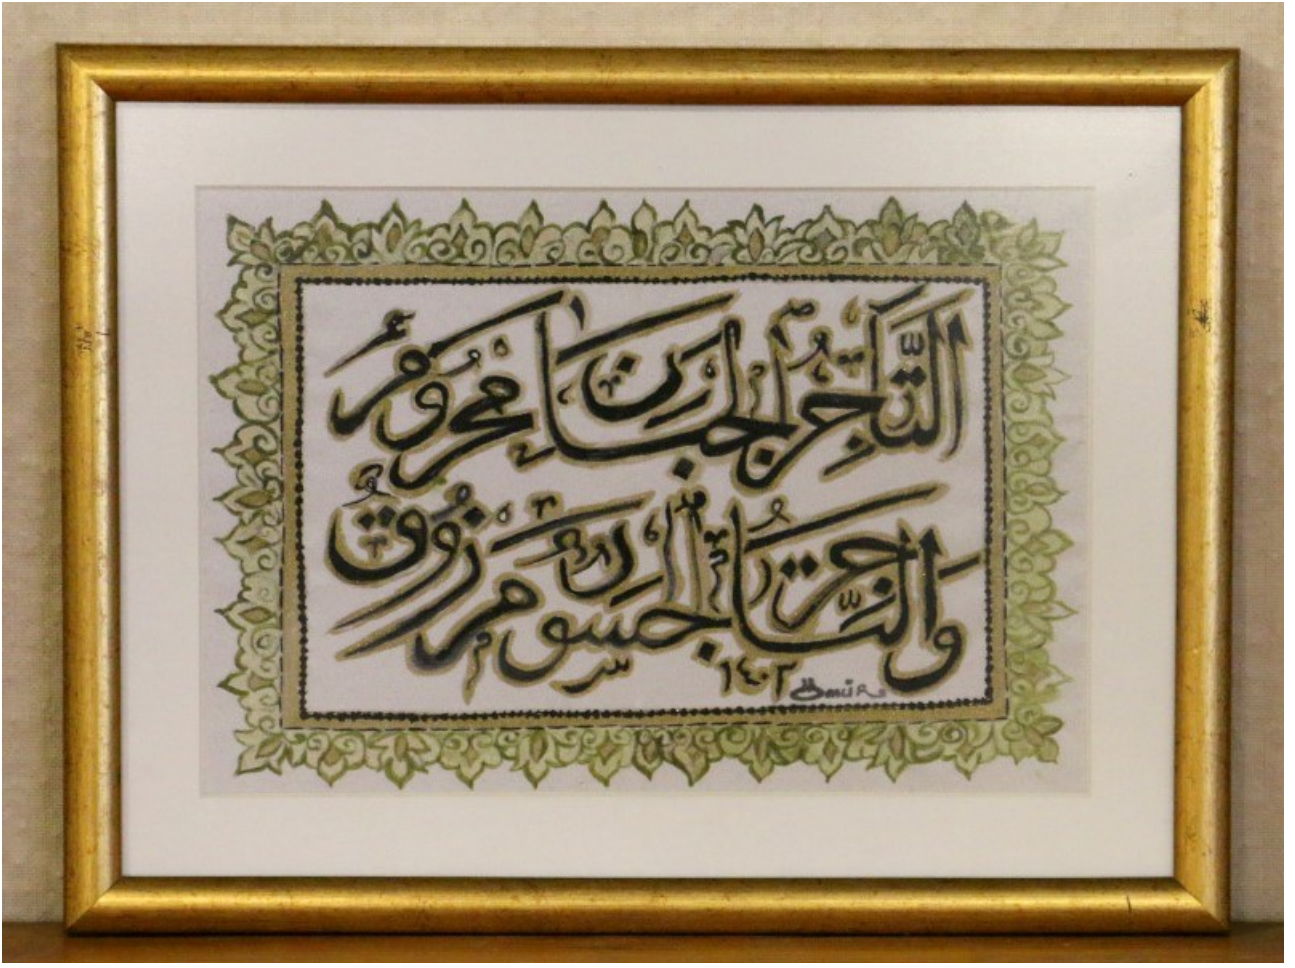 التَّاجِرُ الجَبَانُ مَحْرُومٌ
وَالتَّاجِرُ الجَسُورُ مَرْزُوقٌ
١٤٠٢